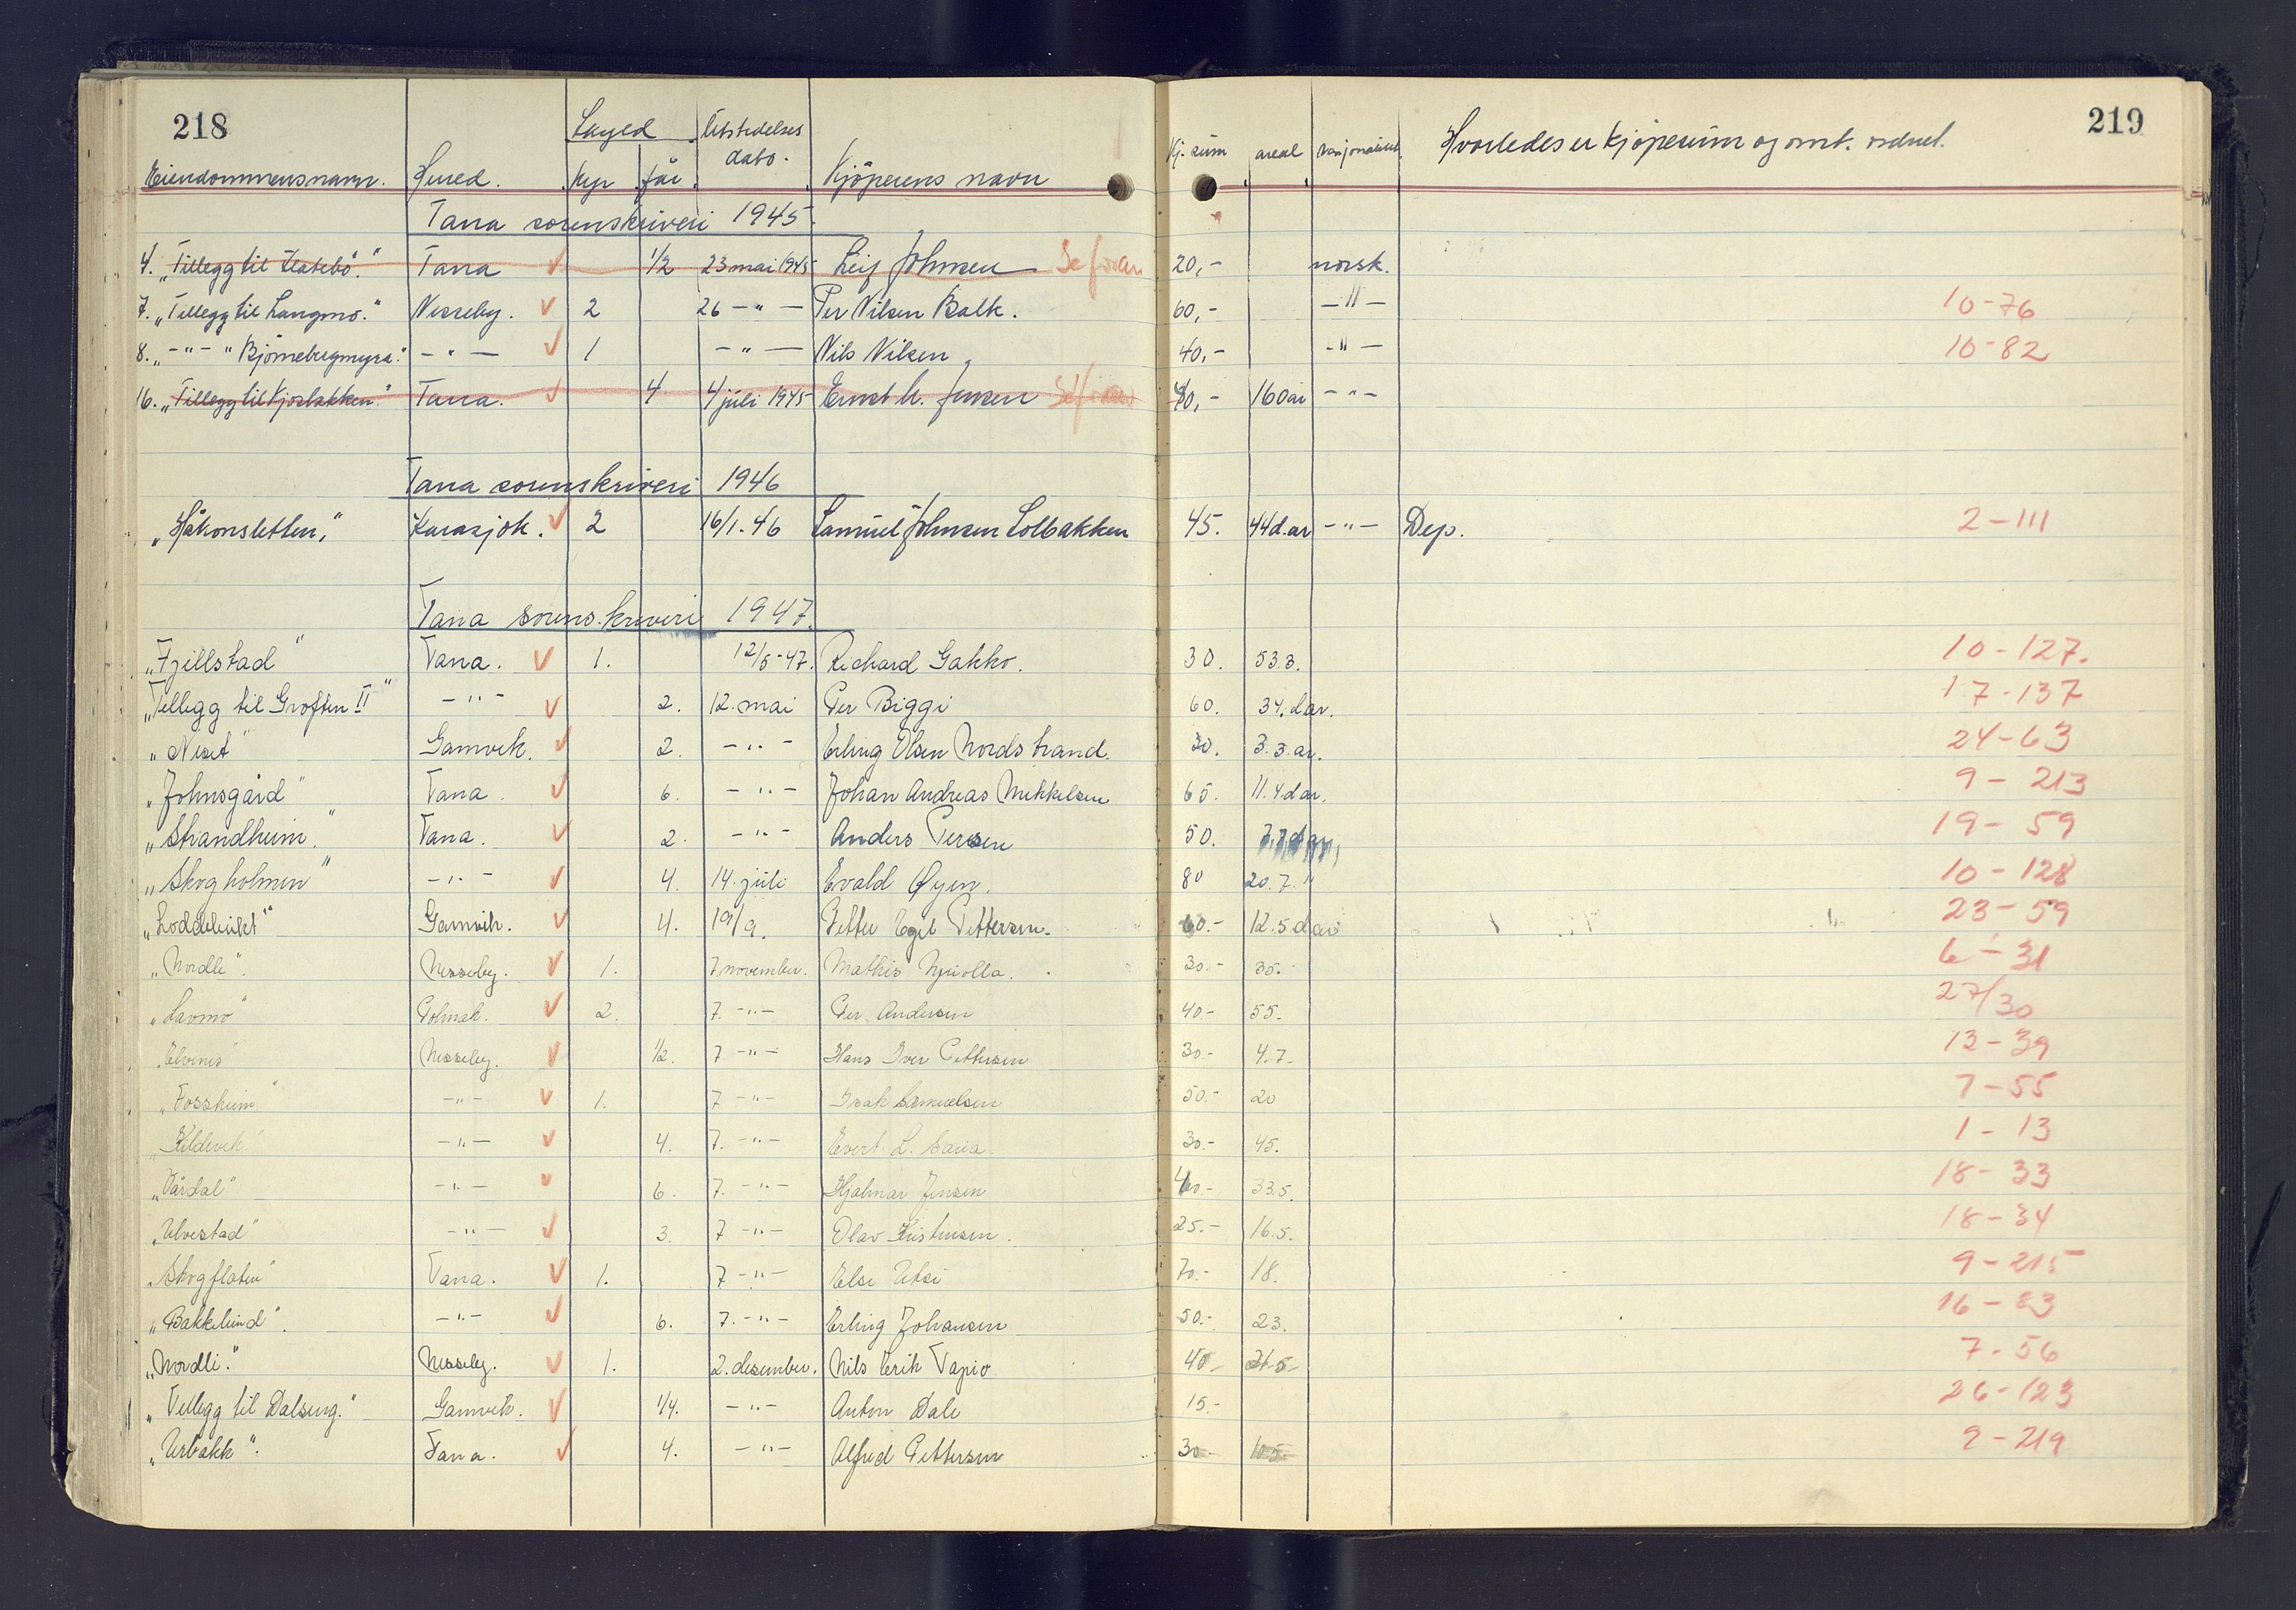 218
219
Eiendommens navn. Hered. Søyed kyr får. Utstedelses dato. Kjøperens navn Kj. sum areal nasjonalitet. Hvorledes er kjøpesum og omk. ordnet.
Tana sorenskriveri 1945.
4. „Tillegg til Flatebö." Tana √ 1/2 23 mai 1945 Leif Johnsen Se foran 20,- norsk.
7. „Tillegg til Langmo." Nesseby. √ 2 26 —"— Per Nilsen Balk. 60,- —"— 10-76
8. „-"- " Björnebergmyra." —"— √ 1 —"— Nils Nilsen 40,- -"- 10-82
16. „Tillegg til Kjosbakken." Tana. √ 4. 4 juli 1945 Ernst h. Jensen Se foran 40,- 160 ar -"-
Tana sorenskriveri 1946
„Håkonsletten," Karasjok. √ 2 16/1.46 Samuel Johnsen Solbakken 45. 44 d.ar -"- Dep. 2-111
Tana sorenskriveri 1947.
„Fjellstad" Tana. √ 1. 12/5-47. Richard Gakko. 30. 53.3. 10-127.
„Tillegg til Groften II" -"- √ 2. 12. mai Per Biggi 60. 34. dar. 17-137
„Neset" Gamvik. √ 2. -"- Erling Olsen Nordstrand. 30. 3.3. ar. 24-63
„Johnsgård" Tana. √ 6. -"- Johan Andreas Mikkelsen 65. 11.4 dar. 9-213
„Strandheim." Tana. √ 2. -"- Anders Persen 50. 19-59
„Skogholmen" -"- √ 4. 14. juli Evald Øyen. 80 20.7." 10-128
Gamvik. √ 4. 19/9. Petter Egil Pettersen. 60.- 12.5 dar 23-59
„Nordli". Nesseby. √ 1. 7. november. Mathis Njuolla. 30.- 35. 6-31
„Lavmo" Polmak. √ 2. 7. -"- Per Andersen 40.- 55. 27/30
„Elvenes" Nesseby. √ 1/2. 7 -"- Hans Iver Pettersen 30.- 4.7.- 12-39
„Fossheim" -"- √ 1. 7 -"- Isak Samuelsen 50.- 20 7-55
„Kildevik" -"- √ 4. 7. -"- Evert L. Saua. 30.- 45. 1-13
„Vårdal" -"- √ 6. 7. -"- Hjalmar Jensen 40.- 33.5. 18-33
„Ulvestad" -"- √ 3. 7 -"- Olav Kristensen. 25.- 16.5. 18-34
„Skogflaten" Tana. √ 1. 7 -"- Else Utsi 70.- 18. 9-215
„Bakkelund". -"- √ 6. 7. -"- Erling Johansen 50.- 23. 16-83
„Nordli." Nesseby. √ 1. 2. desember. Nils Erik Tapio 40- 21.5- 7-56
„Tillegg til Dalseng." Gamvik. √ 1/4. -"- Anton Dale 15.- 26-123
„Urbakk". Tana. √ 4. -"- Alfred Pettersen 30- 10.5. 9-219